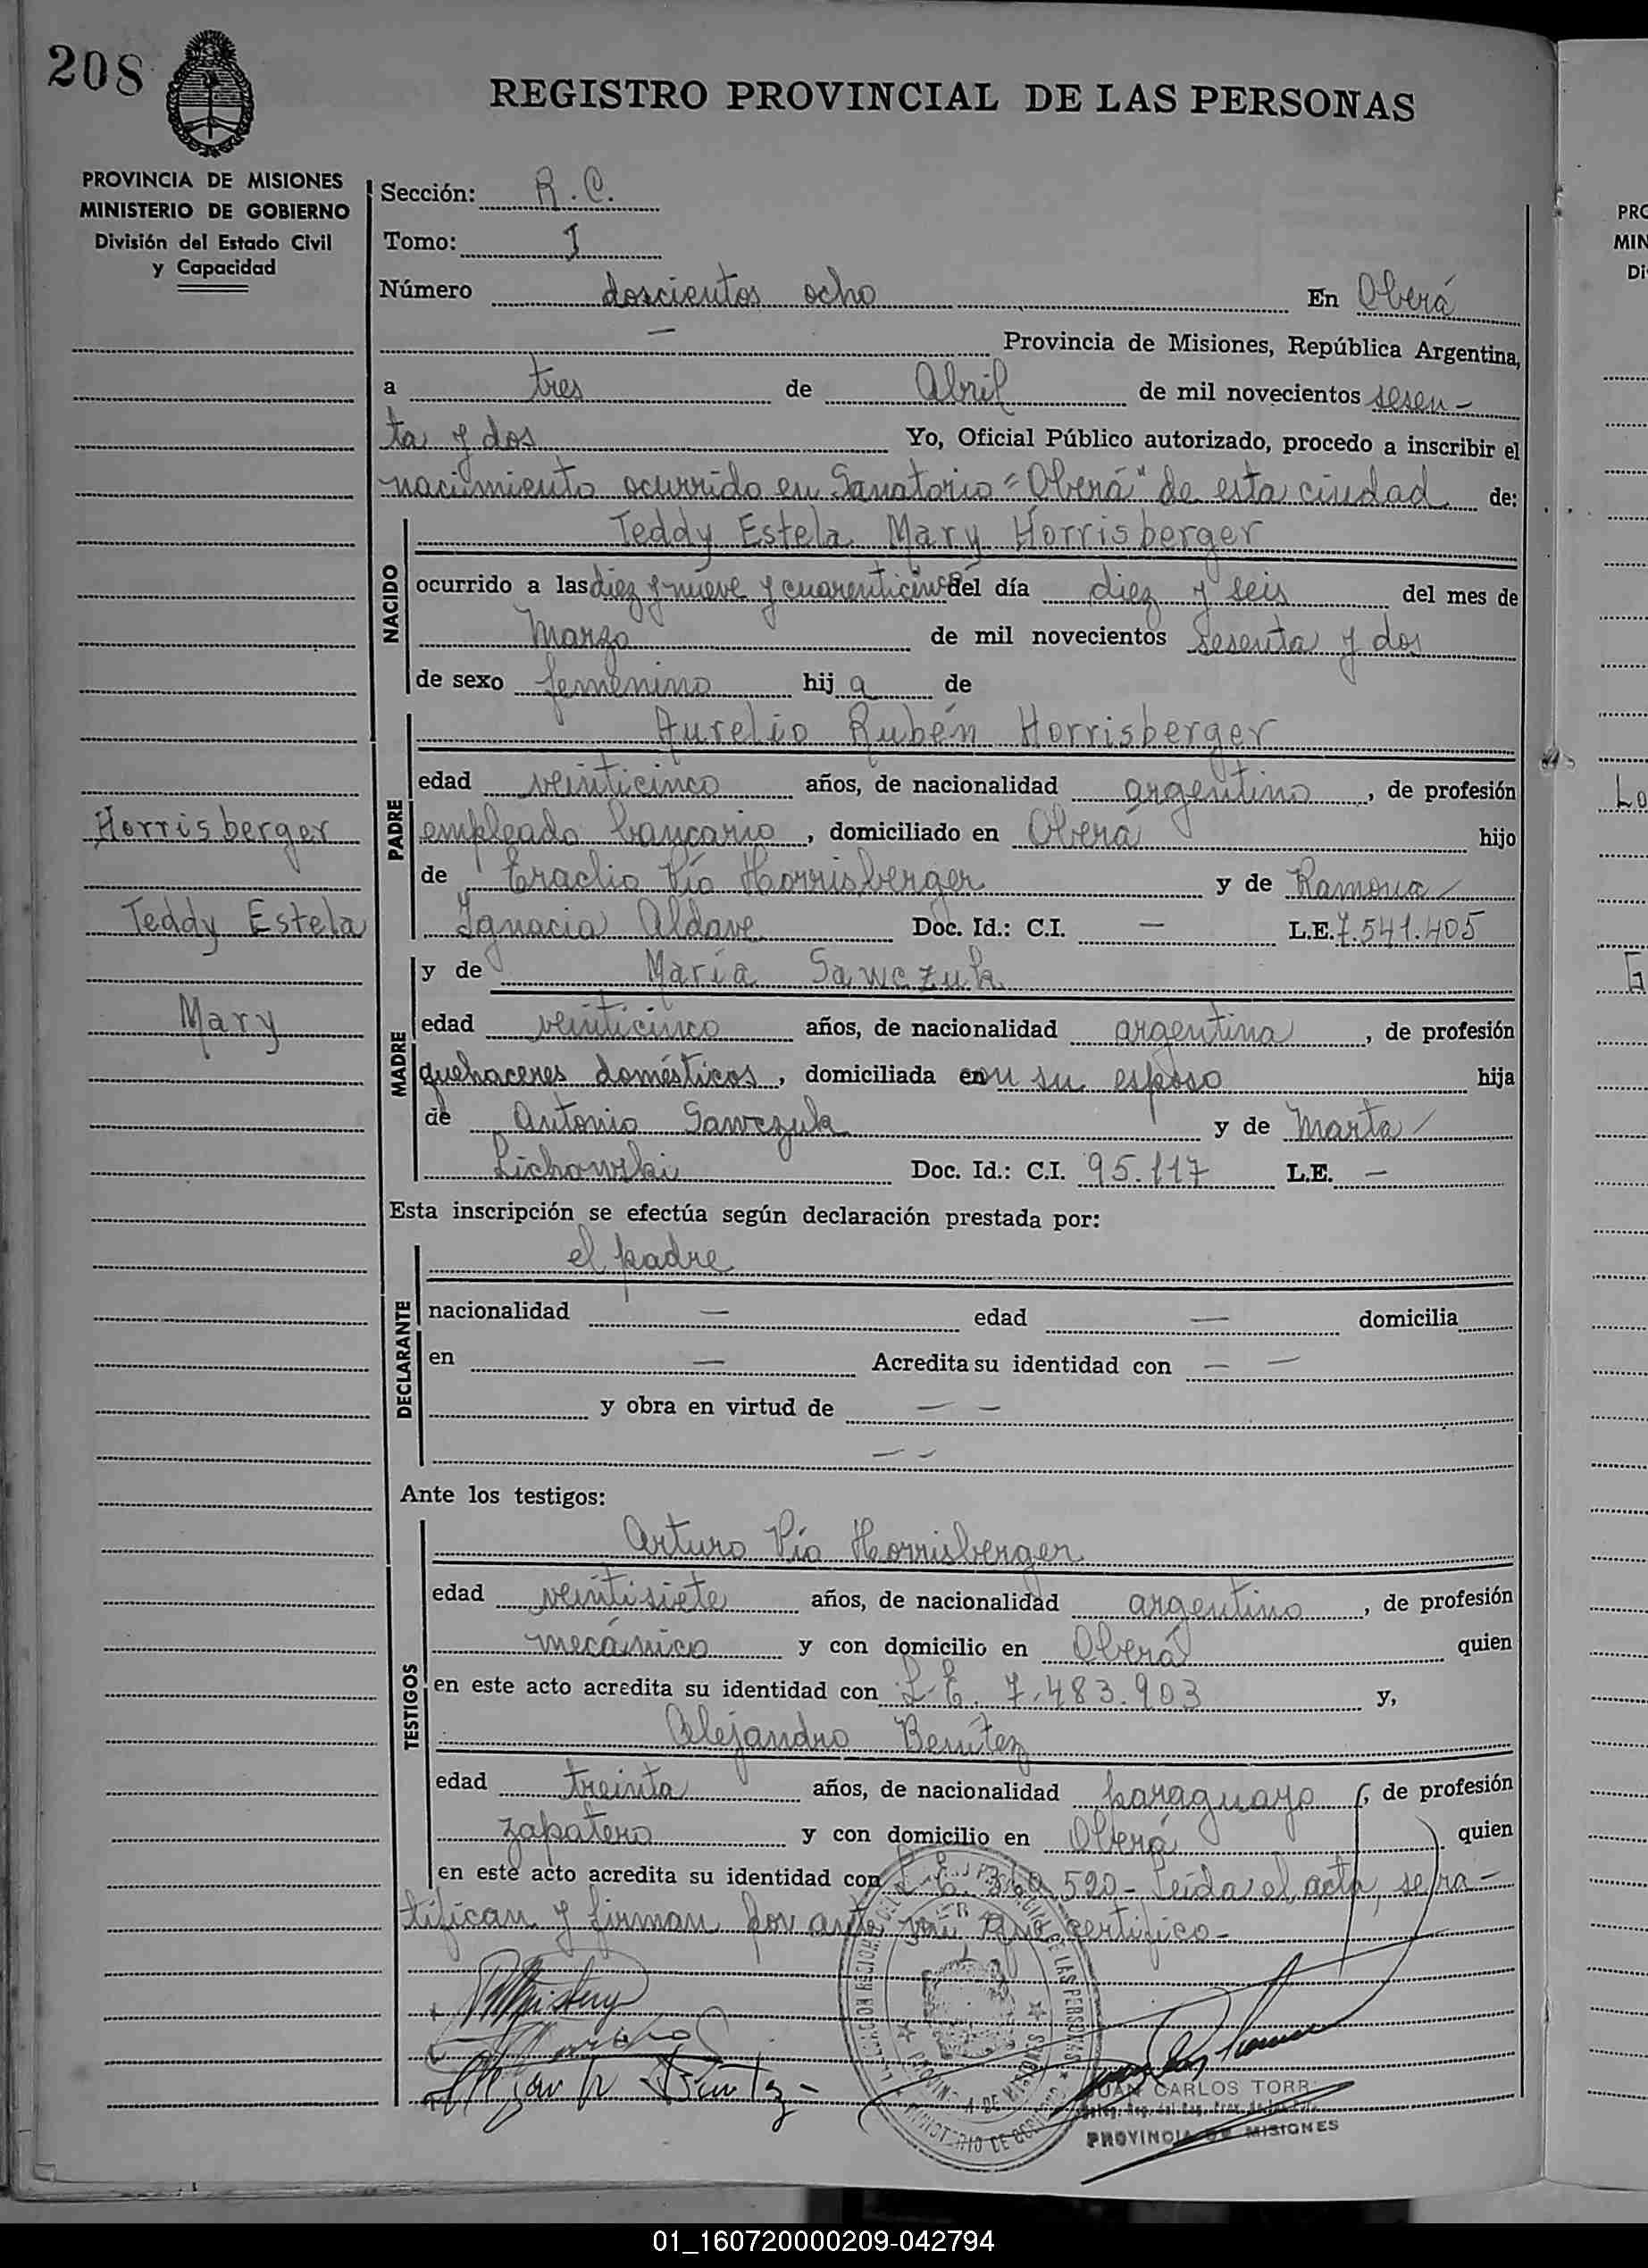 208
REGISTRO PROVINCIAL DE LAS PERSONAS
PROVINCIA DE MISIONES
MINISTERIO DE GOBIERNO
División del Estado Civil
y Capacidad
Sección: R.C.
Tomo: I
Número doscientos ocho En Oberá
— Provincia de Misiones, República Argentina,
a tres de Abril de mil novecientos sesen-
ta y dos Yo, Oficial Público autorizado, procedo a inscribir el
nacimiento ocurrido en Sanatorio "Oberá" de esta ciudad de:
NACIDO
Teddy Estela Mary Horrisberger
ocurrido a las diez y nueve y cuarenticinco del día diez y seis del mes de
Marzo de mil novecientos sesenta y dos
de sexo femenino hij a de
PADRE
Aurelio Rubén Horrisberger
edad veinticinco años, de nacionalidad argentino, de profesión
empleado bancario, domiciliado en Oberá hijo
de Eraclio Pío Horrisberger y de Ramona
Ignacia Aldave Doc. Id.: C.I. — L.E. 7.541.405
Horrisberger
Teddy Estela
Mary
MADRE
y de María Sawczuk
edad veinticinco años, de nacionalidad argentina, de profesión
quehaceres domésticos, domiciliada en su esposo hija
de Antonio Sawczuk y de Marta
Lichowski Doc. Id.: C.I. 95.117 L.E. —
Esta inscripción se efectúa según declaración prestada por:
DECLARANTE
el padre
nacionalidad — edad — domicilia
en — Acredita su identidad con — —
y obra en virtud de — —
— —
Ante los testigos:
TESTIGOS
Arturo Pío Horrisberger
edad veintisiete años, de nacionalidad argentino, de profesión
mecánico y con domicilio en Oberá quien
en este acto acredita su identidad con L.E. 7.483.903 y,
Alejandro Benítez
edad treinta años, de nacionalidad paraguayo, de profesión
zapatero y con domicilio en Oberá quien
en este acto acredita su identidad con 520- Leída el acta, se ra-
tifican y firman por ante mí que certifico-
JUAN CARLOS TORR
PROVINCIA DE MISIONES
PRO
MIN
Di
01_160720000209-042794